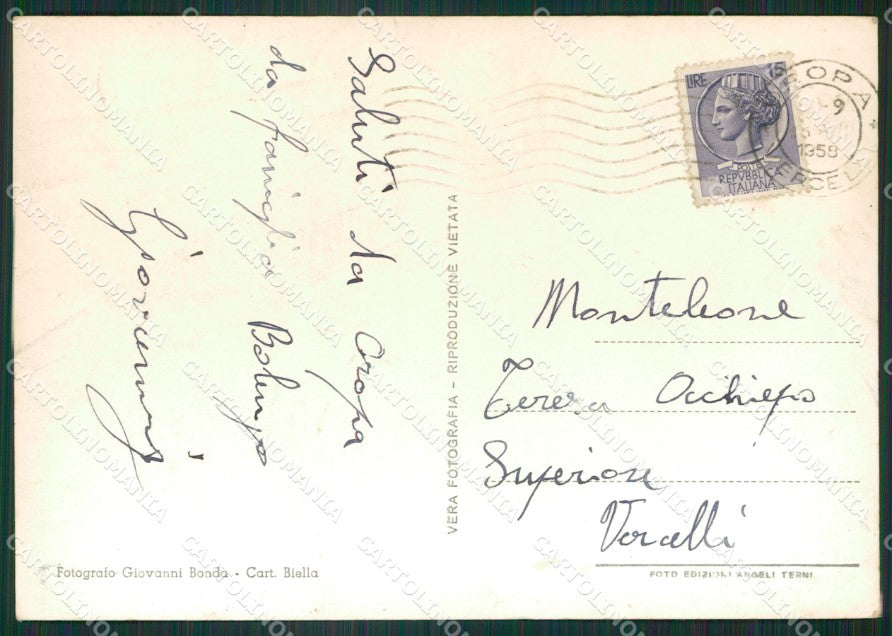 Saluti da Oropa
da famiglia
LIRE 15
POSTE
REPVBBLICA
ITALIANA
OROPA
9
1958
VERCELLI
VERA FOTOGRAFIA - RIPRODUZIONE VIETATA
Monteleone
Teresa Occhieppo
Superiore
Vercelli
Fotografo Giovanni Bonda - Cart. Biella
FOTO EDIZIONI ANGELI TERNI
CARTOLINOMANIA